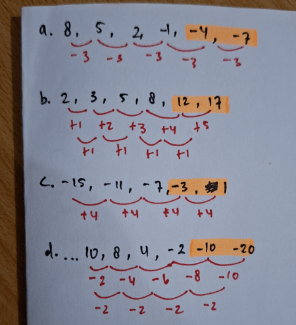 a. 8, 5, 2, -1, -4, -7
-3 -3 -3 -3 -3
b. 2, 3, 5, 8, 12, 17
+1 +2 +3 +4 +5
+1 +1 +1 +1
c. -15, -11, -7, -3, 1
+4 +4 +4 +4
d. ... 10, 8, 4, -2 -10 -20
-2 -4 -6 -8 -10
-2 -2 -2 -2